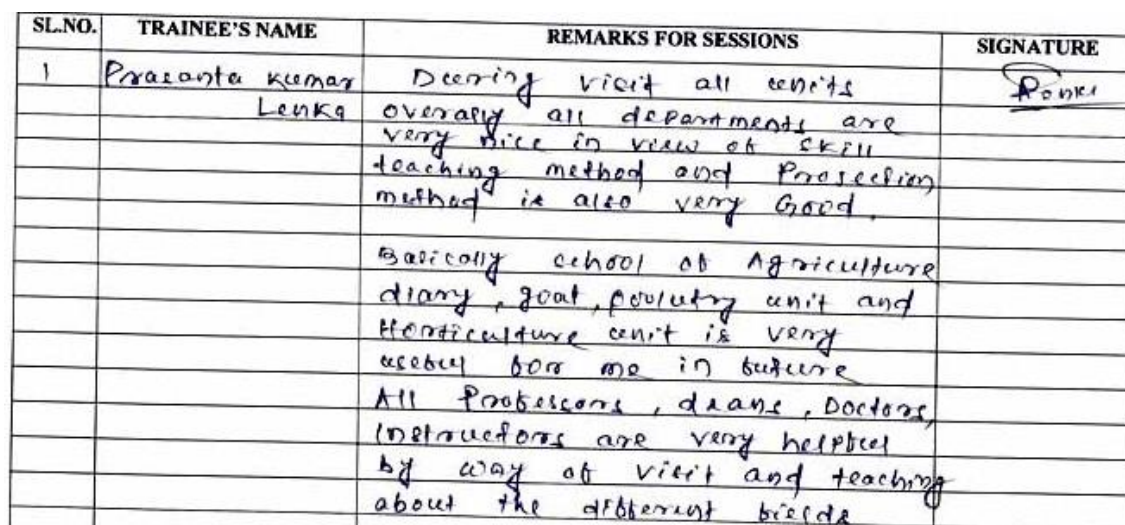 SL.NO. TRAINEE'S NAME REMARKS FOR SESSIONS SIGNATURE
1 Prasanta Kumar During visit all units
Lenka overally all departments are
very nice in view of skill
teaching method and Prosection
method is also very Good.
Basically school of Agriculture
diary, goat, poulutry unit and
Horticulture unit is very
useful for me in future
All Professors, deans, Doctors,
Instructors are very helpful
by way of visit and teaching
about the different fields